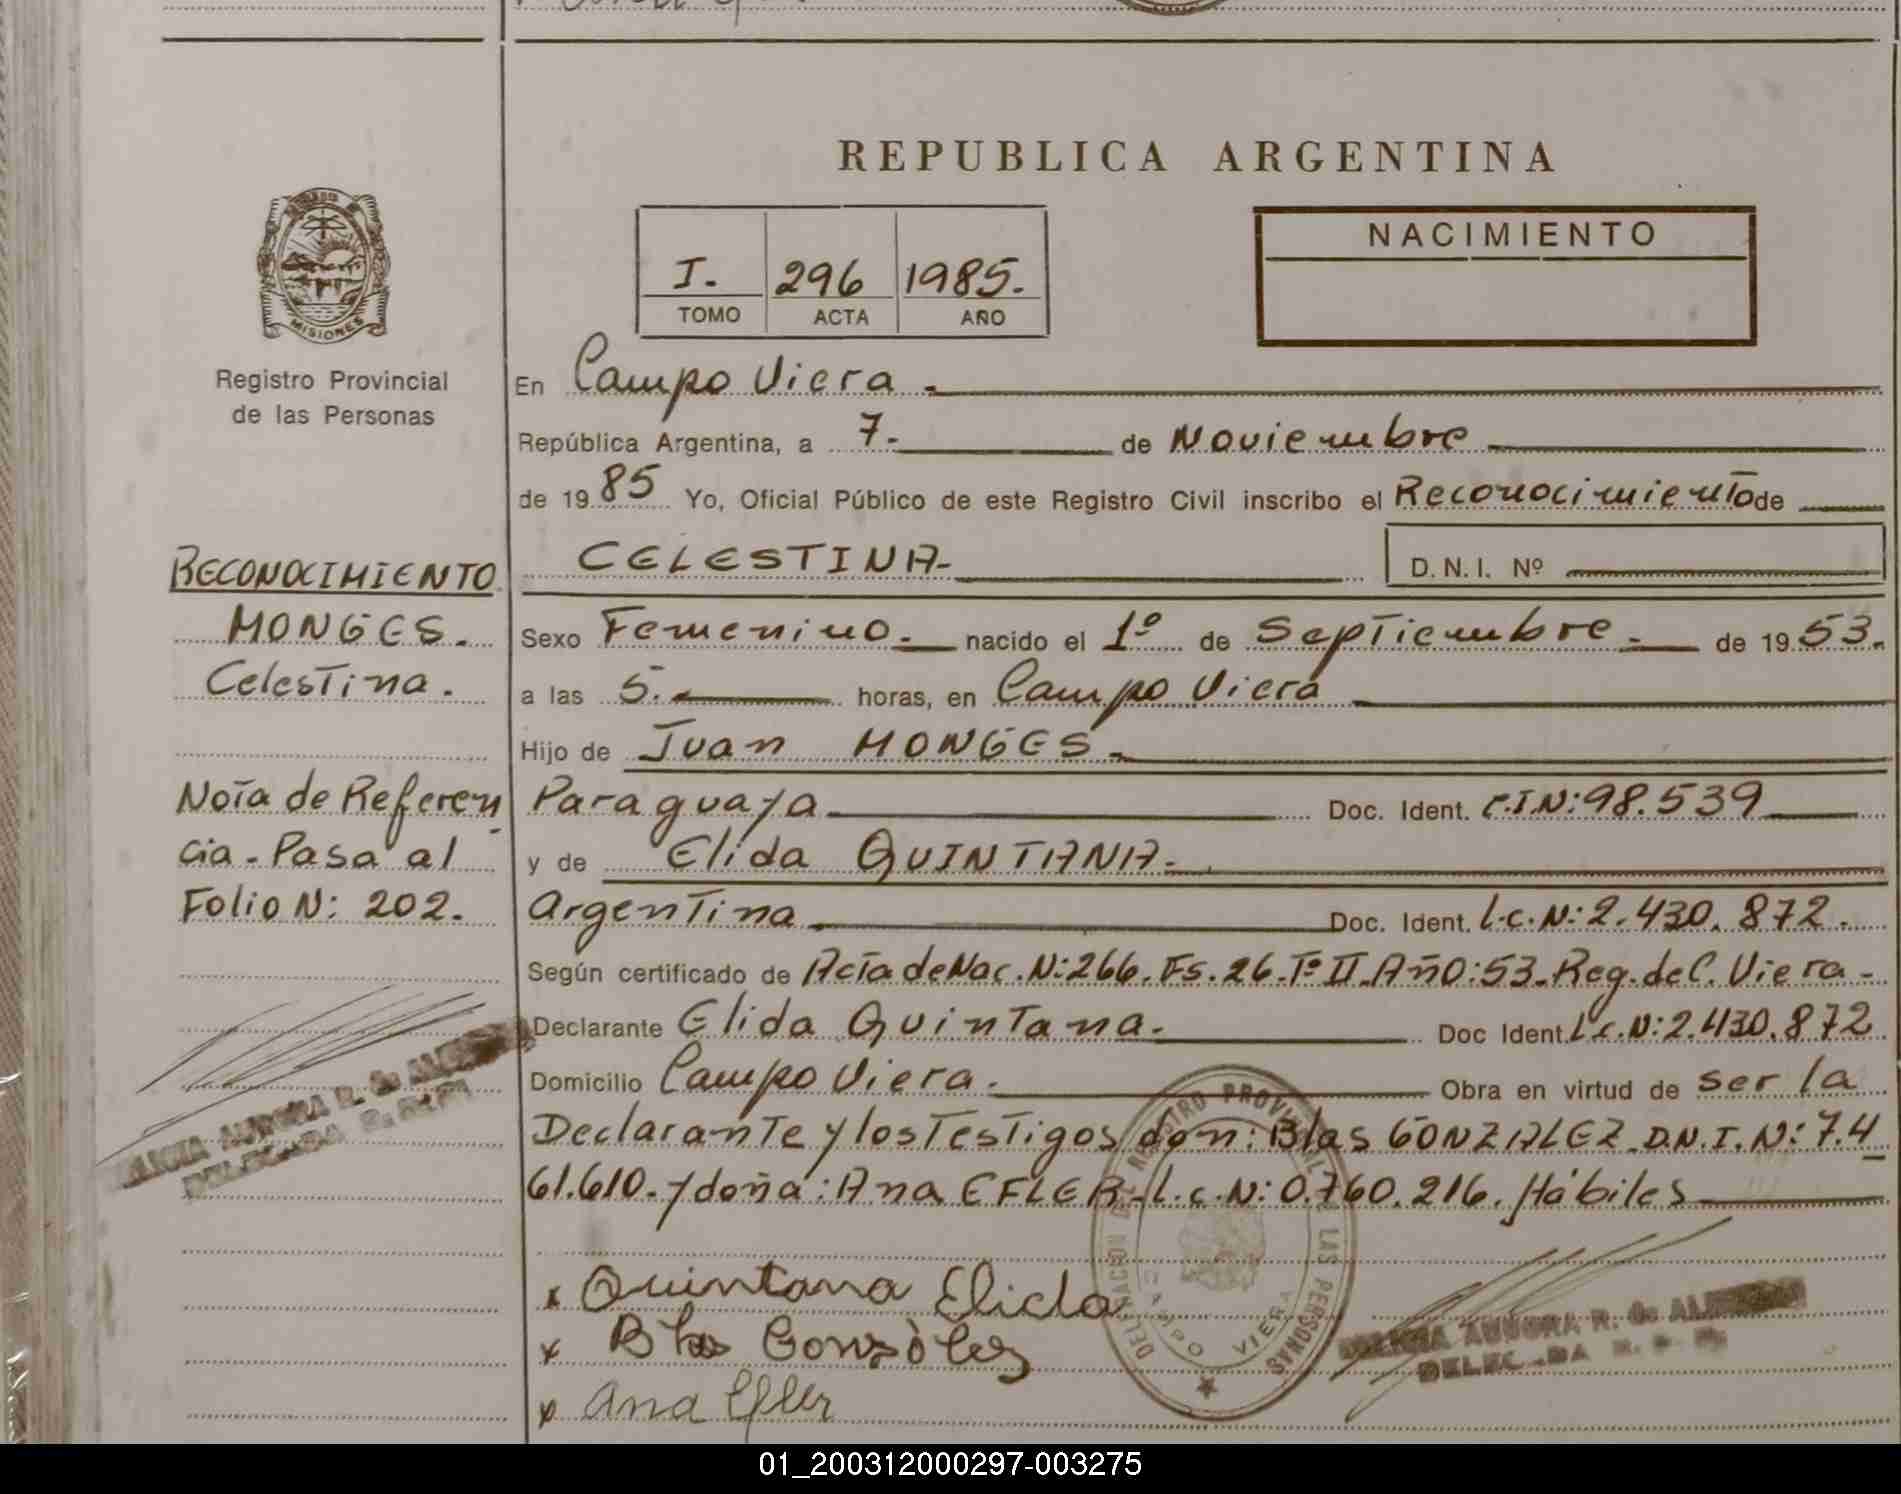 REPUBLICA ARGENTINA
NACIMIENTO
I. 296 1985.
TOMO ACTA AÑO
MISIONES
Registro Provincial
de las Personas
En Campo Viera.
República Argentina, a 7. de Noviembre
de 1985 Yo, Oficial Público de este Registro Civil inscribo el Reconocimiento de
CELESTINA- D.N.I. Nº
Sexo Femenino. nacido el 1º de Septiembre. de 1953.
a las 5. horas, en Campo Viera
Hijo de Juan MONGES.
Paraguaya Doc. Ident. C.I.N:98.539
y de Elida QUINTANA.
Argentina Doc. Ident. L.C.N:2.430.872.
Según certificado de Acta de Nac. N:266. Fs. 26. Tº II. Año:53. Reg. de C. Viera.
Declarante Elida Quintana. Doc Ident. L.C.N:2.430.872
Domicilio Campo Viera. Obra en virtud de ser la
Declarante y los Testigos don: Blas GONZALEZ D.N.I.N: 7.4
61.610. y doña: Ana EFLER. L.C.N: 0.760.216. Hábiles
x Quintana Elida
x Blas Gonzàlez
x Ana Efler
RECONOCIMIENTO
MONGES.
Celestina.
Nota de Referen
cia. Pasa al
Folio N: 202.
AURORA R. de
DELEGADA
DELEGACION DEL REGISTRO PROVINCIAL DE LAS PERSONAS
CAMPO VIERA
AURORA R. de
DELEGADA
01_200312000297-003275